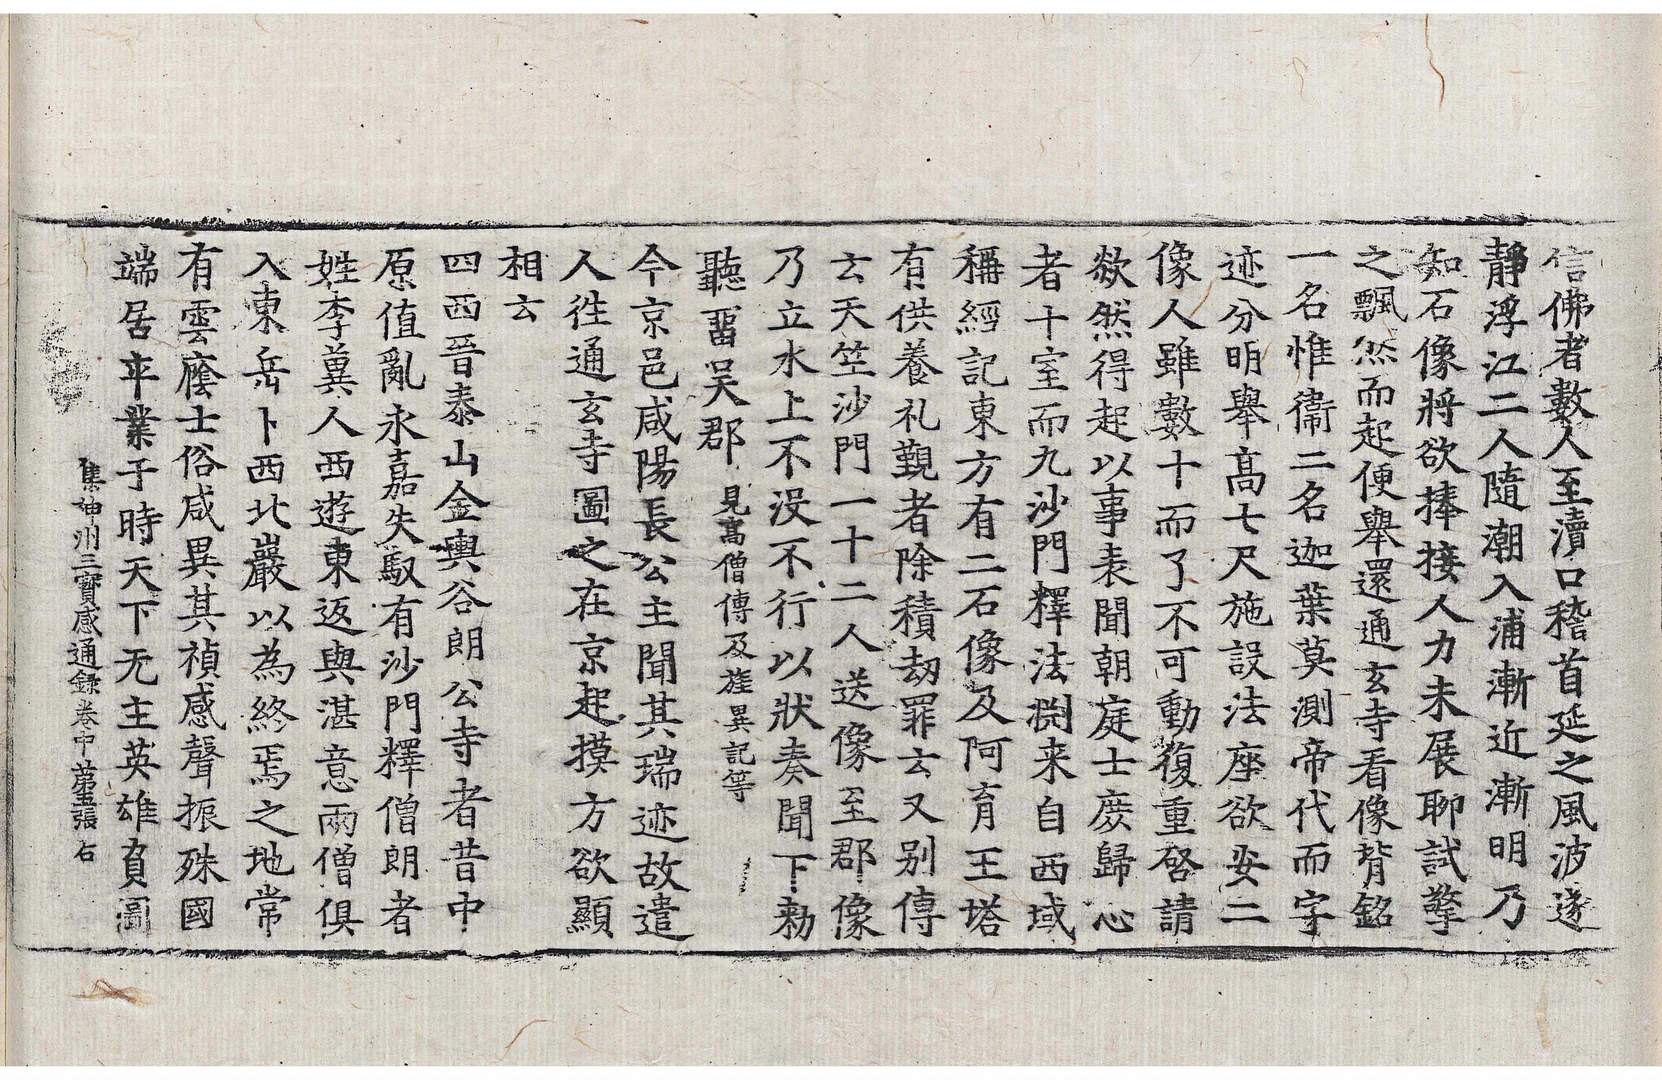 信佛者數人至瀆口稽首延之風波遂
靜浮江二人隨潮入浦漸近漸明乃
知石像將欲捧接人力未展聊試擎
之飄然而起便舉還通玄寺看像背銘
一名惟衞二名迦葉莫測帝代而字
迹分明舉髙七尺施設法座欲安二
像人雖數十而了不可動復重啓請
欻然得起以事表聞朝庭士庶歸心
者十室而九沙門釋法渕来自西域
稱經記東方有二石像及阿育王塔
有供養礼覲者除積劫罪云又別傳
云天竺沙門一十二人送像至郡像
乃立水上不没不行以狀奏聞下勑
聽畱吴郡見髙僧傳及旌異記等
今京邑咸陽長公主聞其瑞迹故遣
人徃通玄寺圖之在京起摸方欲顯
相云
四西晉泰山金輿谷朗公寺者昔中
原值亂永嘉失馭有沙門釋僧朗者
姓李兾人西遊東返與湛意兩僧俱
入東岳卜西北巖以為終焉之地常
有雲廕士俗咸異其禎感聲振殊國
端居卒業于時天下无主英雄負圖
集神州三寳感通録卷中苐五張 石